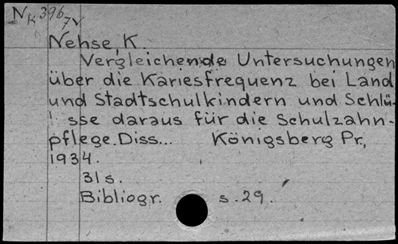 Nk 396/7v
Nehse, K.
Vergleichende Untersuchungen
über die Kariesfrequenz bei Land
und Stadtschulkindern und Schlü-
! sse daraus für die Schulzahn-
pflege. Diss... Königsberg Pr,
1934.
31s.
Bibliogr. s.29.